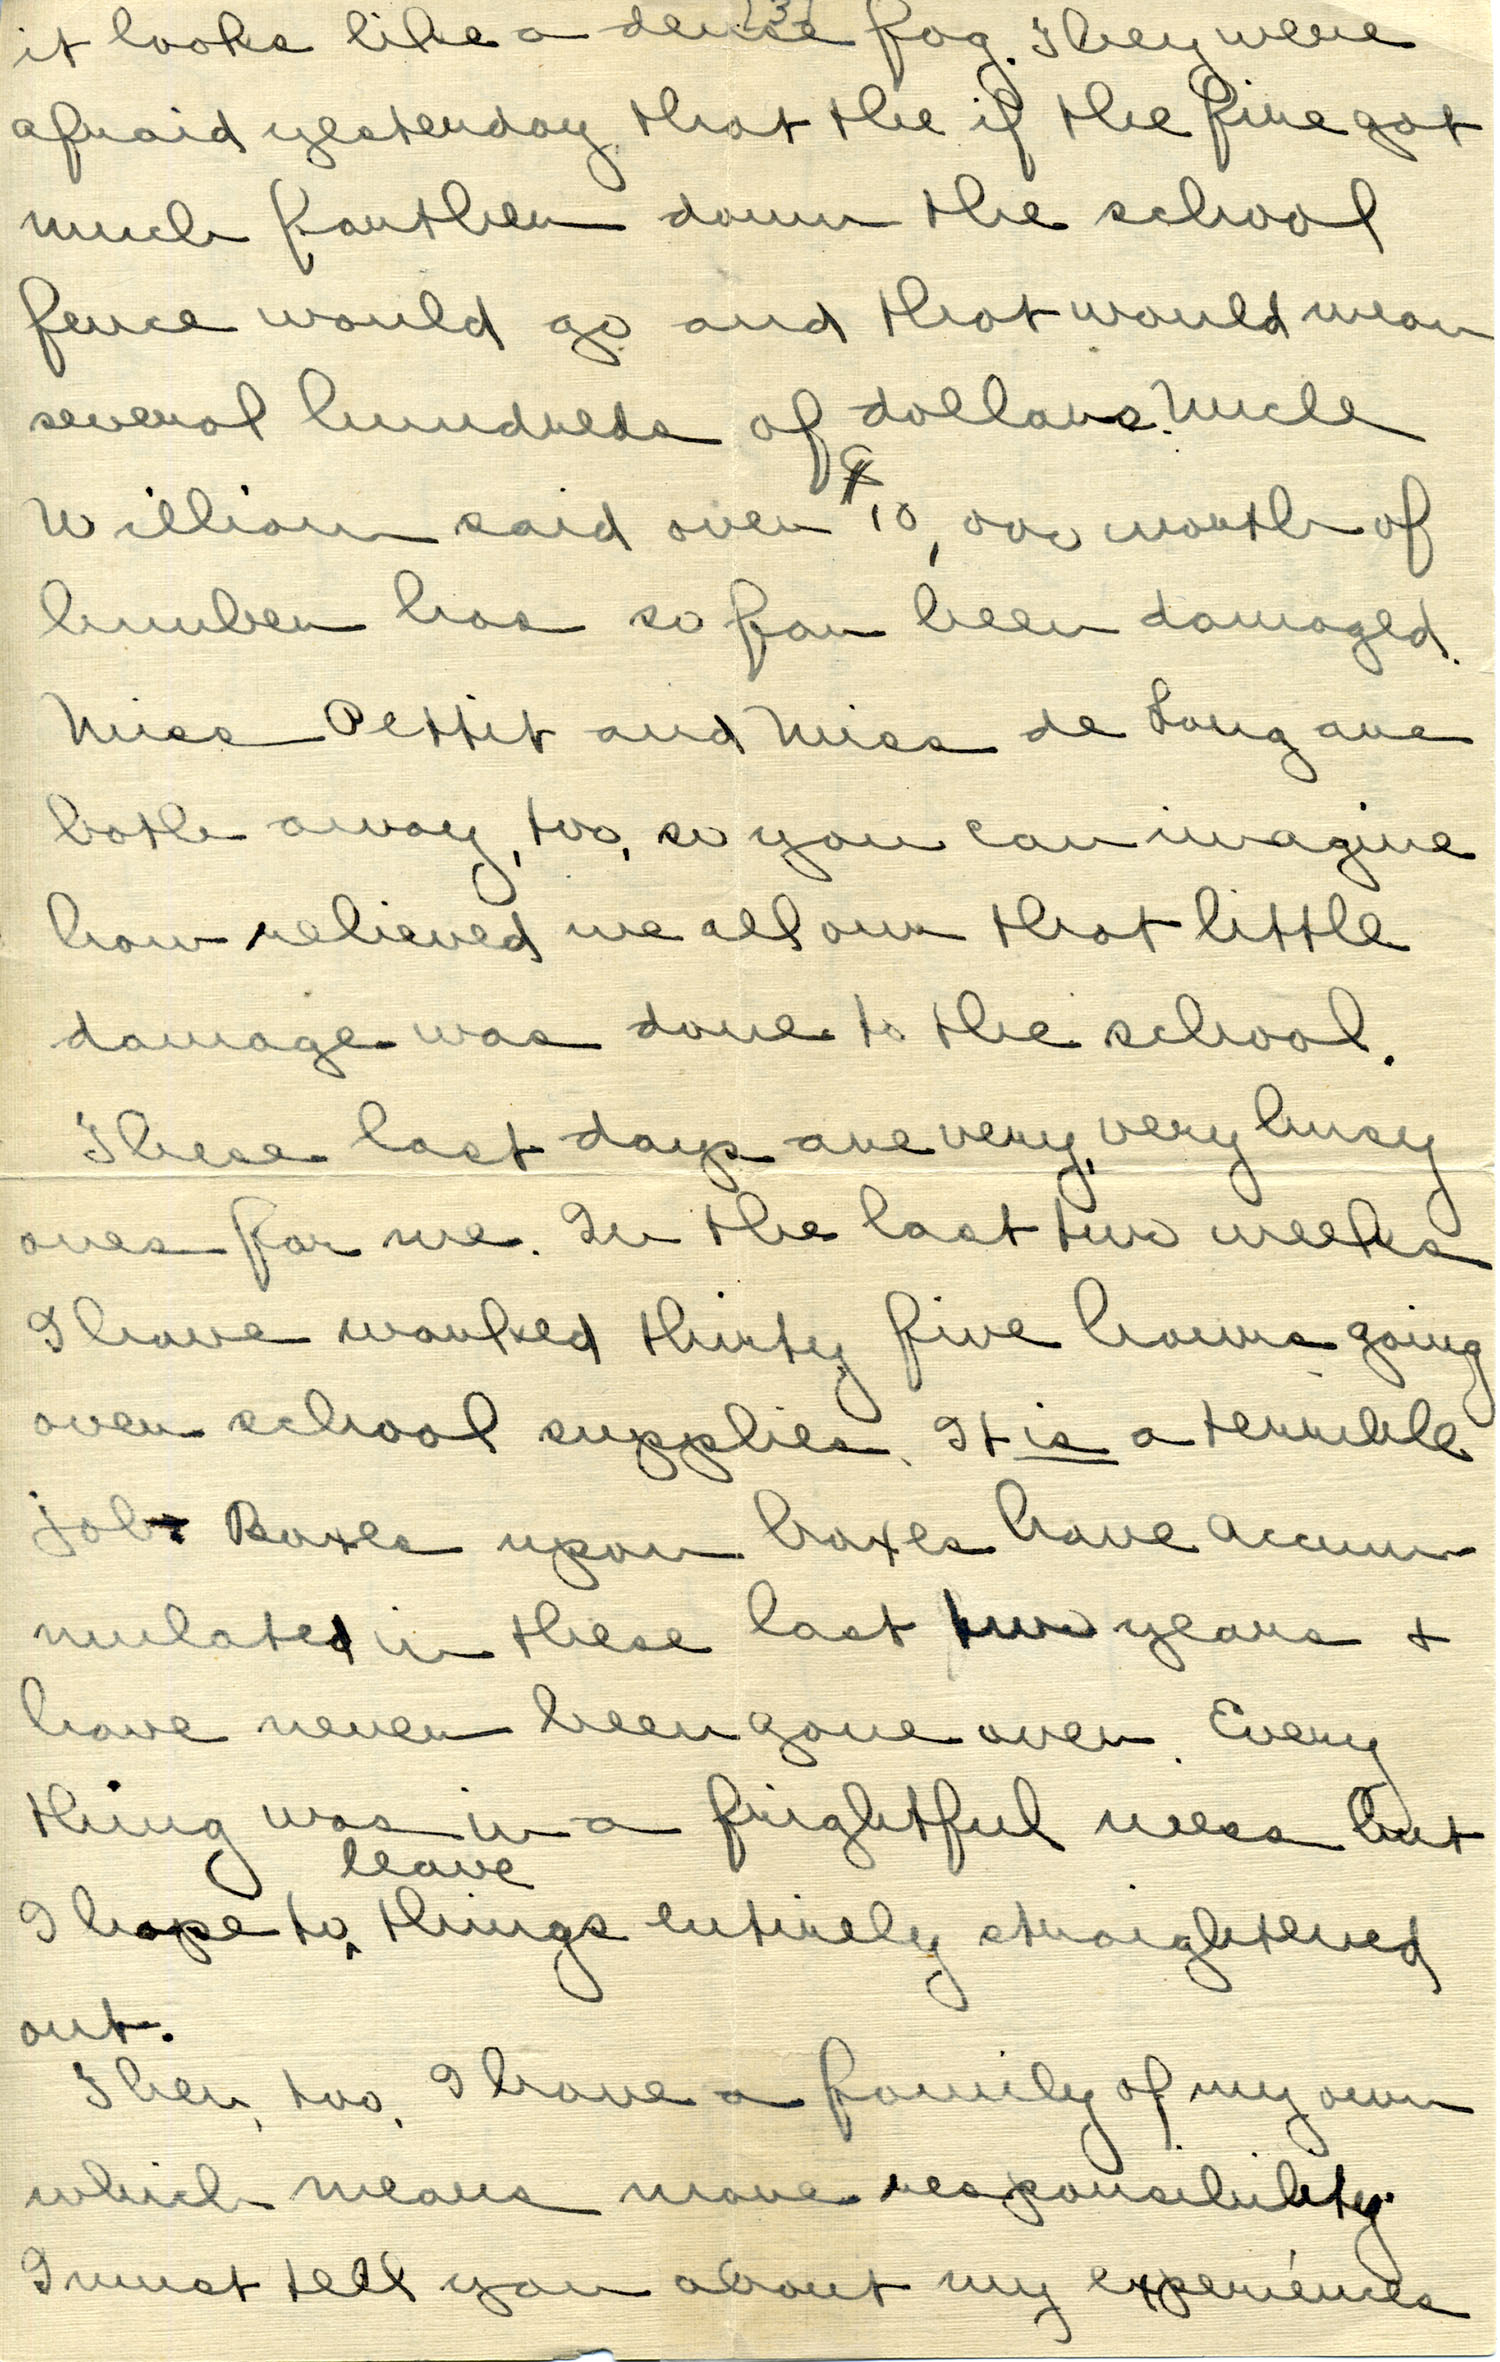 [3]
it looks like a dense fog. They were
afraid yesterday that the if the fire got
much farther down the school
fence would go and that would mean
several hundreds of dollars. Uncle
William said over $10,000 worth of
lumber has so far been damaged.
Miss Pettit and Miss de Long are
both away, too, so you can imagine
how relieved we all our that little
damage was done to the school.
These last days are very, very busy
ones for me. In the last two weeks
I have worked thirty five hours going
over school supplies. It is a terrible
job. Boxes upon boxes have accum
mulated in these last two years +
have never been gone over. Every
thing was in a frightful mess but
I hope to leave things entirely straightened
out.
Then, too, I have a family of my own
which means more responsibility.
I must tell you about my experiences